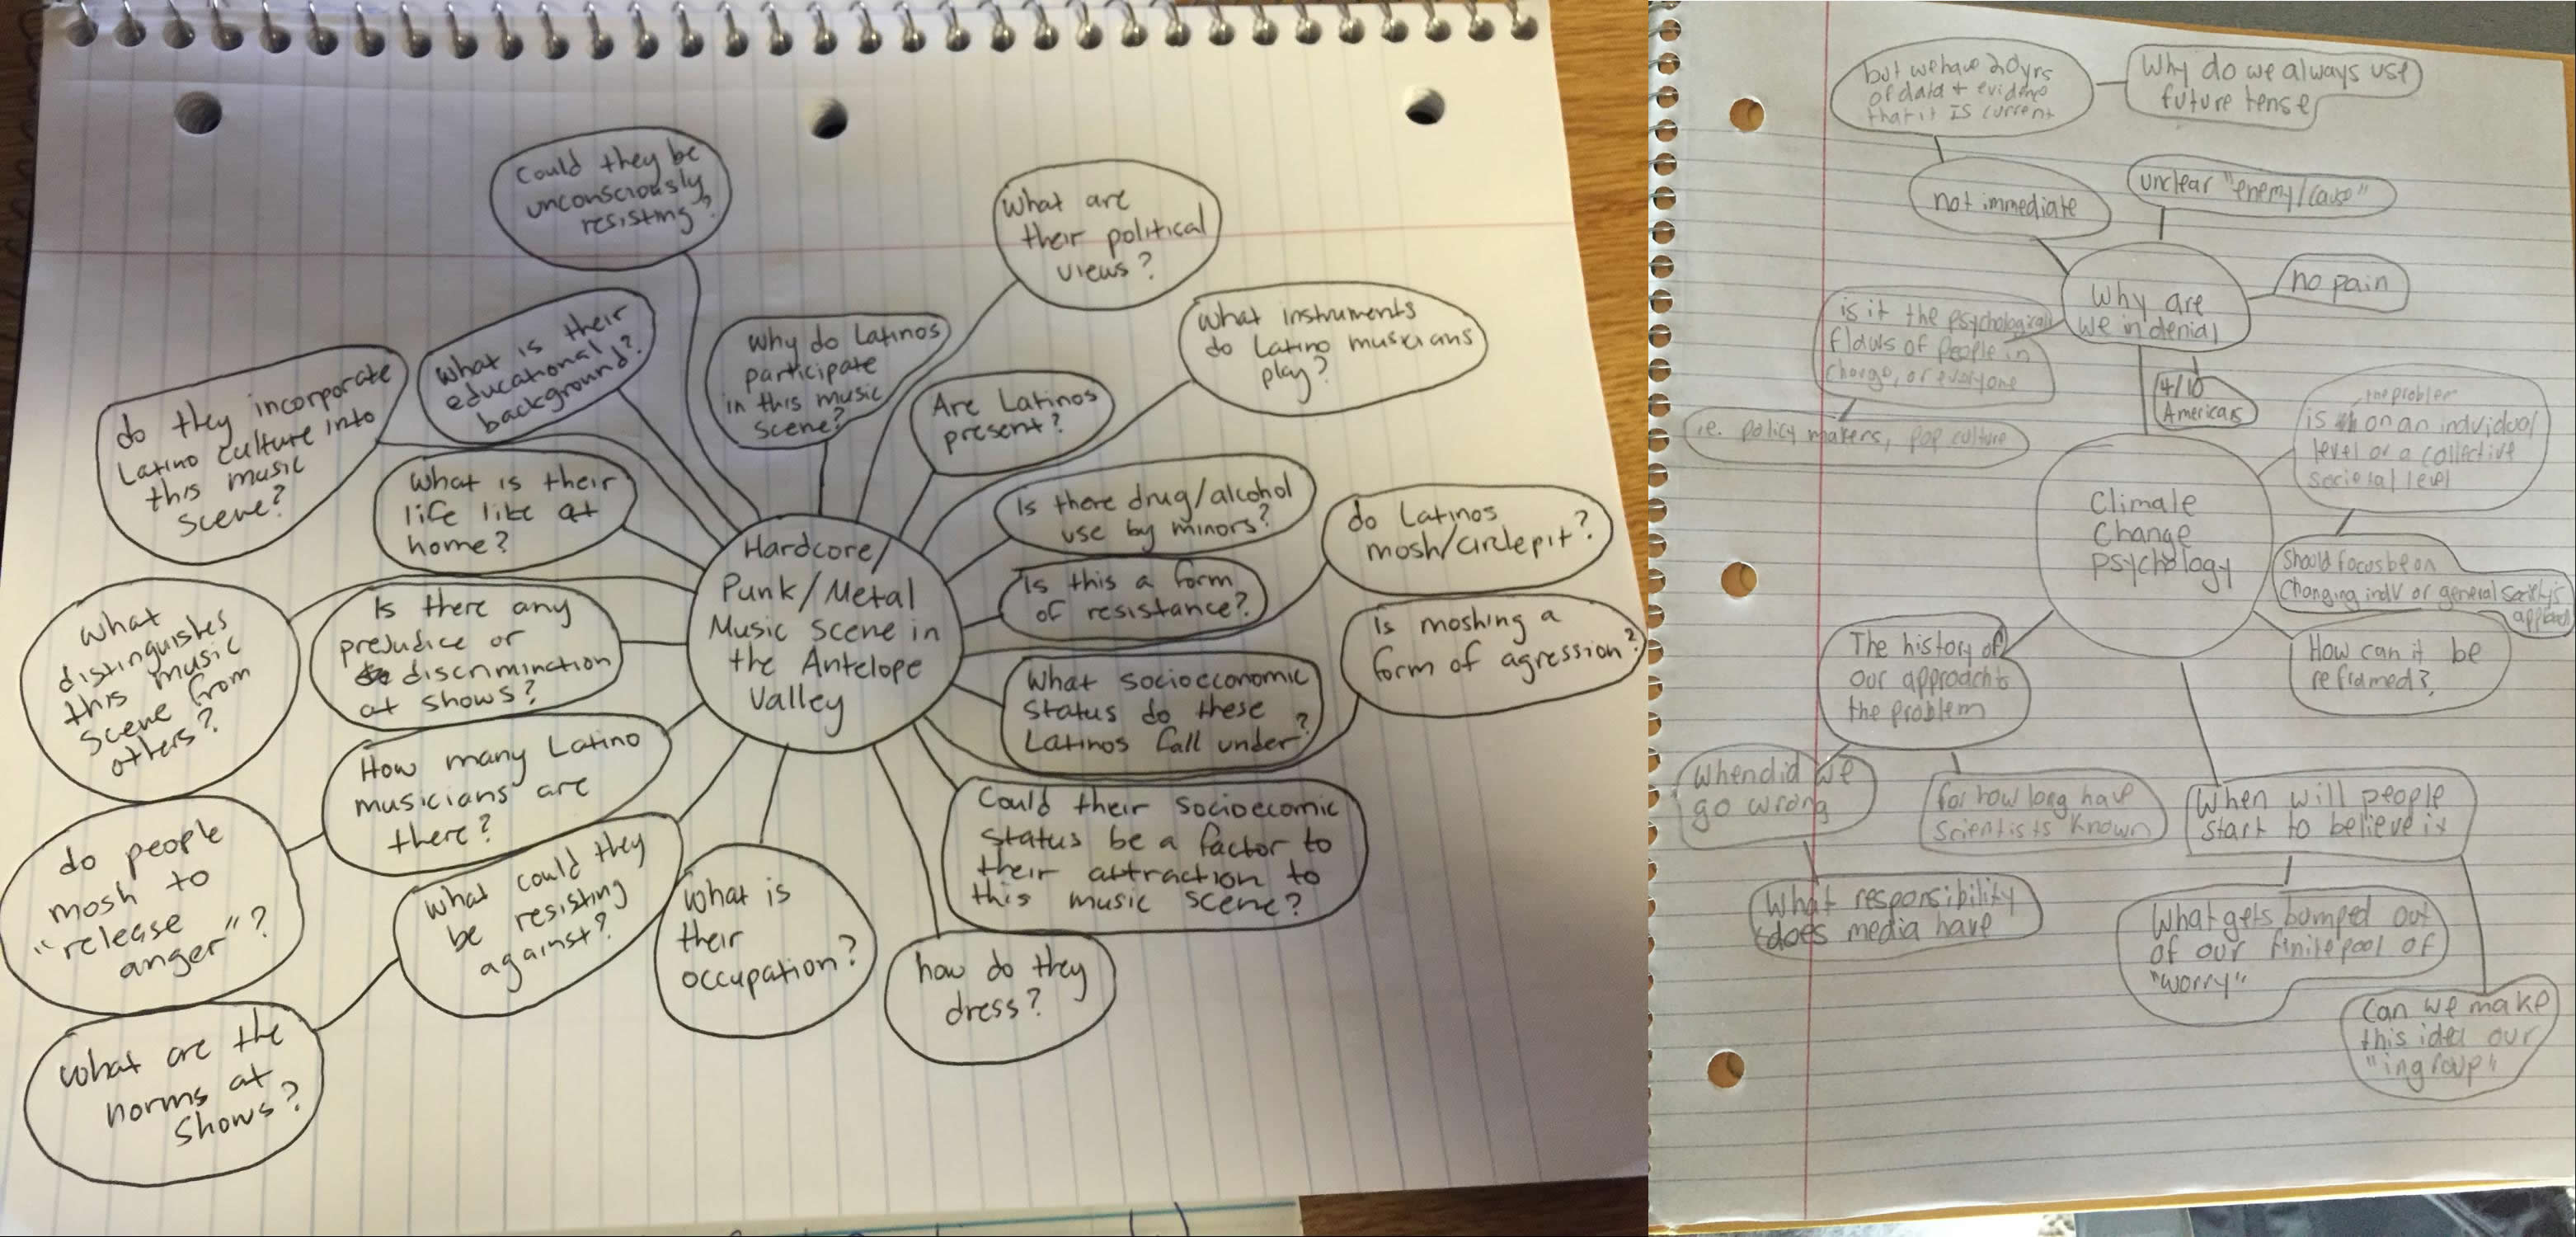 Could they be
unconsciously
resisting?
What are
their political
views?
What is their
educational
background?
Why do Latinos
participate
in this music
scene?
What instruments
do Latino musicians
play?
do they incorporate
Latino culture into
this music
scene?
Are Latinos
present?
What is their
life like at
home?
Is there drug/alcohol
use by minors?
do Latinos
mosh/circlepit?
Hardcore/
Punk/Metal
Music scene in
the Antelope
Valley
Is this a form
of resistance?
Is moshing a
form of agression?
What
distinguishes
this music
scene from
others?
Is there any
prejudice or
discrminction
at shows?
What socioeconomic
status do these
Latinos fall under?
How many Latino
musicians are
there?
Could their socioecomic
status be a factor to
their attraction to
this music scene?
do people
mosh to
"release
anger"?
What could they
be resisting
against?
What is
their
occupation?
how do they
dress?
What are the
norms at
shows?
but we have 20yrs
of data + evidence
that it IS current
Why do we always use
future tense
not immediate
unclear "enemy/cause"
Why are
we in denial
no pain
is it the psychological
flaws of people in
charge, or everyone
i.e. policy makers, pop culture
4/10
Americans
the problem
is on an individual
level or a collective
societal level
Climate
Change
psychology
Should focus be on
changing indv or general society's
approach
The history of
our approach to
the problem
How can it be
reframed?
When did we
go wrong
for how long have
scientists known
When will people
start to believe it
What responsibility
does media have
What gets bumped out
of our finite pool of
"worry"
Can we make
this idea our
"ingroup"